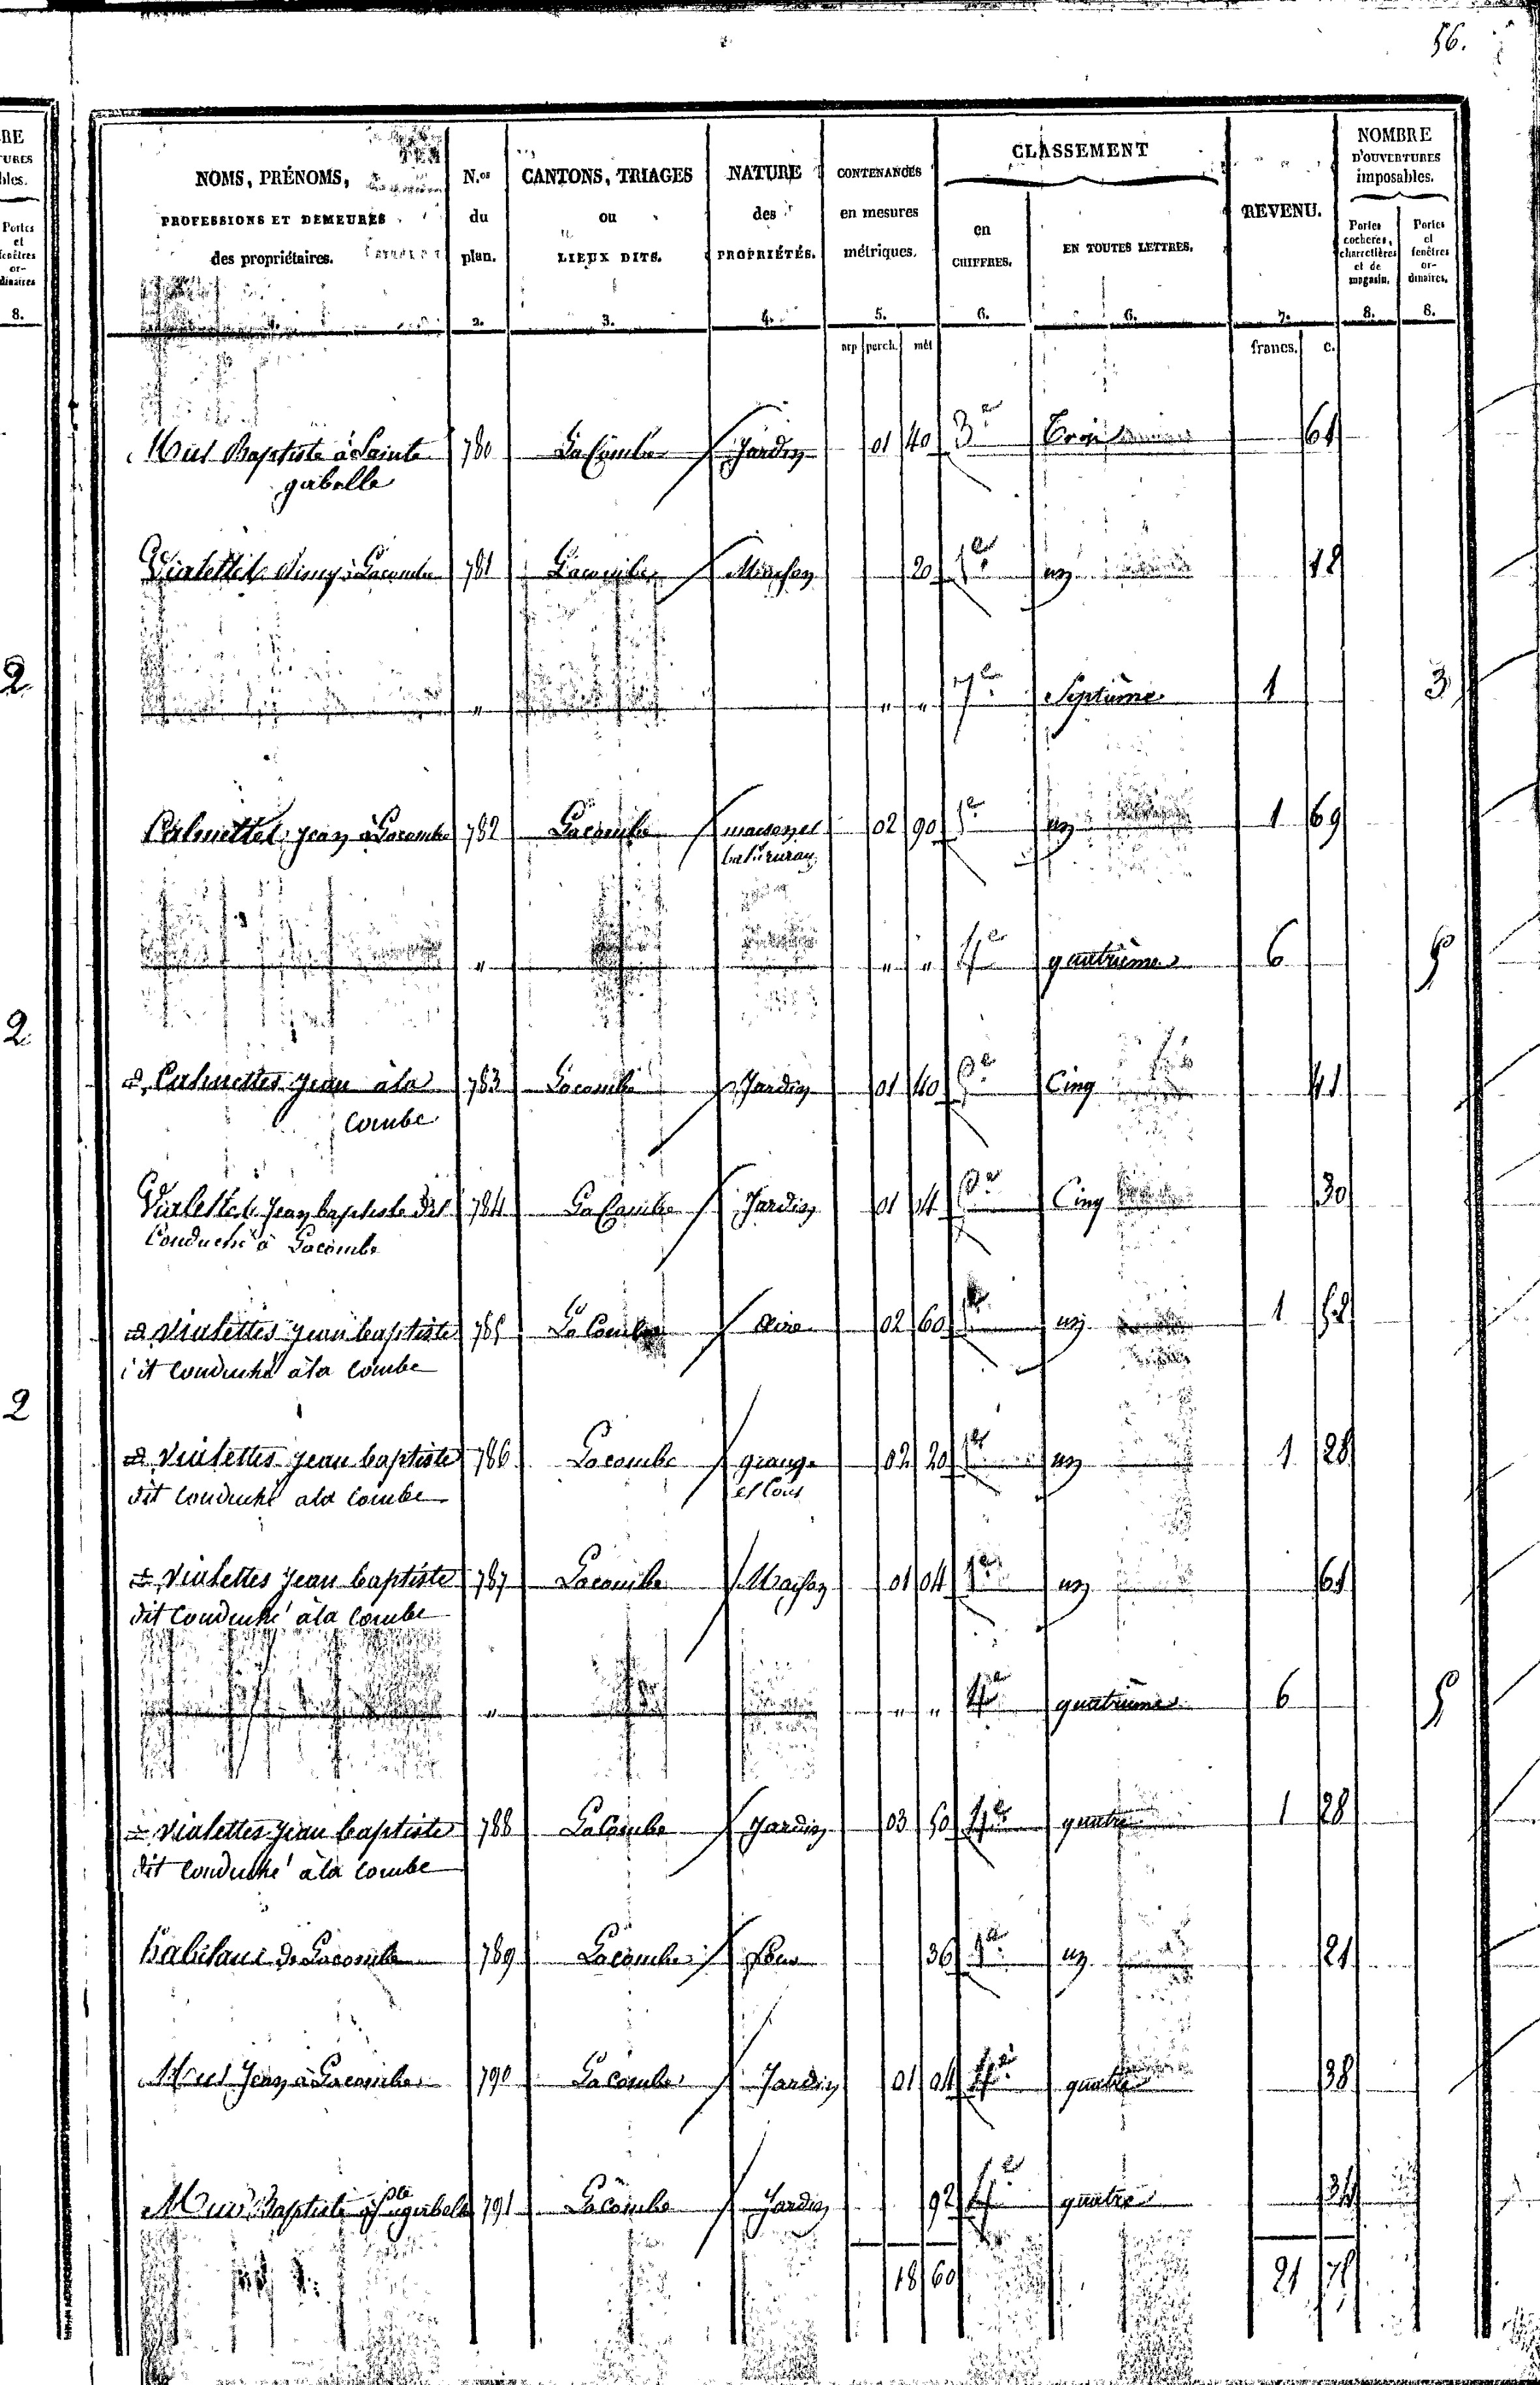 56.
RE
TURES
bles.
Portes
et
fenêtres
or-
dinaires
8.
2
2
2
NOMS, PRÉNOMS,
PROFESSIONS ET DEMEURES
des propriétaires.
N.os
du
plan.
2.
CANTONS, TRIAGES
ou
LIEUX DITS.
3.
NATURE
des
PROPRIÉTÉS.
4.
CONTENANCES
en mesures
métriques.
5.
arp perch. mèt
CLASSEMENT
en
CHIFFRES.
6.
EN TOUTES LETTRES.
6.
REVENU.
7.
francs. c.
NOMBRE
D'OUVERTURES
imposables.
Portes
cochères,
charretières
et de
magasin.
8.
Portes
et
fenêtres
or-
dinaires.
8.
Baptiste à Sainte 780 La Combe Jardin 01 40 3e Trois 61
gabelle
à Lacombe 781 Lacombe Maison 20 1er un 12
" " " 7e Septième 1 3
Calmettes Jean à Lacombe 782 Lacombe maison et 02 90 1er un 1 69
" " " 4e quatrième 6 5
Calmettes jean à la 783 Lacombe Jardin 01 40 5e Cinq 41
Combe
Vialettes Jean baptiste dit 784 La Combe Jardin 01 04 5e Cinq 30
Conduché à Lacombe
Vialettes jean baptiste 785 La Combe aire 02 60 1er un 1 52
dit Conduché à la combe
Vialettes jean baptiste 786 Lacombe grange 02 20 1er un 1 28
dit Conduché a la Combe et Cour
Vialettes jean baptiste 787 Lacombe Maison 01 04 1er un 61
dit Conduché à la Combe
" " " 4e quatrième 6 5
Vialettes jean baptiste 788 La Combe Jardin 03 50 4e quatre 1 28
dit Conduché à la Combe
de Lacombe 789 Lacombe four 36 1er un 21
Jean à Lacombe 790 Lacombe Jardin 01 04 4e quatre 38
Baptiste à 791 Lacombe Jardin 92 4e quatre 34
18 60 21 75